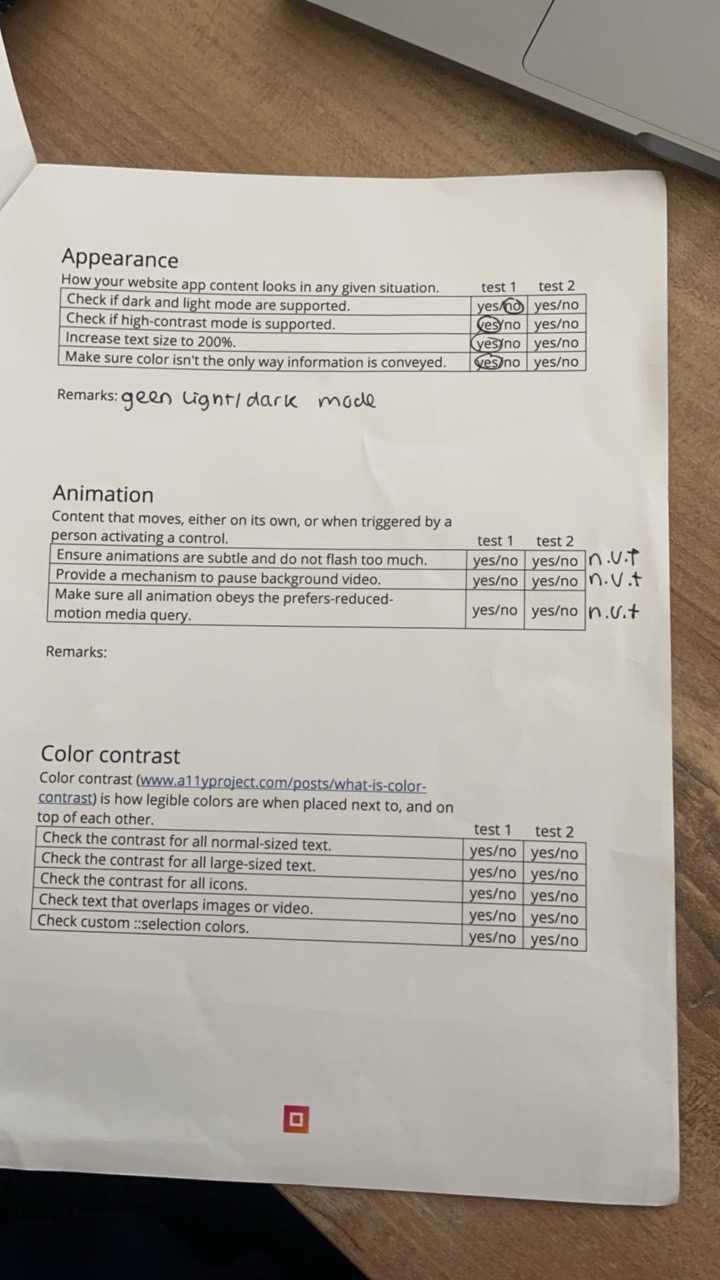 Appearance
How your website app content looks in any given situation. test 1 test 2
Check if dark and light mode are supported. yes/no yes/no
Check if high-contrast mode is supported. yes/no yes/no
Increase text size to 200%. yes/no yes/no
Make sure color isn't the only way information is conveyed. yes/no yes/no
Remarks: geen light/dark mode
Animation
Content that moves, either on its own, or when triggered by a
person activating a control. test 1 test 2
Ensure animations are subtle and do not flash too much. yes/no yes/no n.v.t
Provide a mechanism to pause background video. yes/no yes/no n.v.t
Make sure all animation obeys the prefers-reduced-
motion media query. yes/no yes/no n.v.t
Remarks:
Color contrast
Color contrast (www.a11yproject.com/posts/what-is-color-
contrast) is how legible colors are when placed next to, and on
top of each other. test 1 test 2
Check the contrast for all normal-sized text. yes/no yes/no
Check the contrast for all large-sized text. yes/no yes/no
Check the contrast for all icons. yes/no yes/no
Check text that overlaps images or video. yes/no yes/no
Check custom ::selection colors. yes/no yes/no